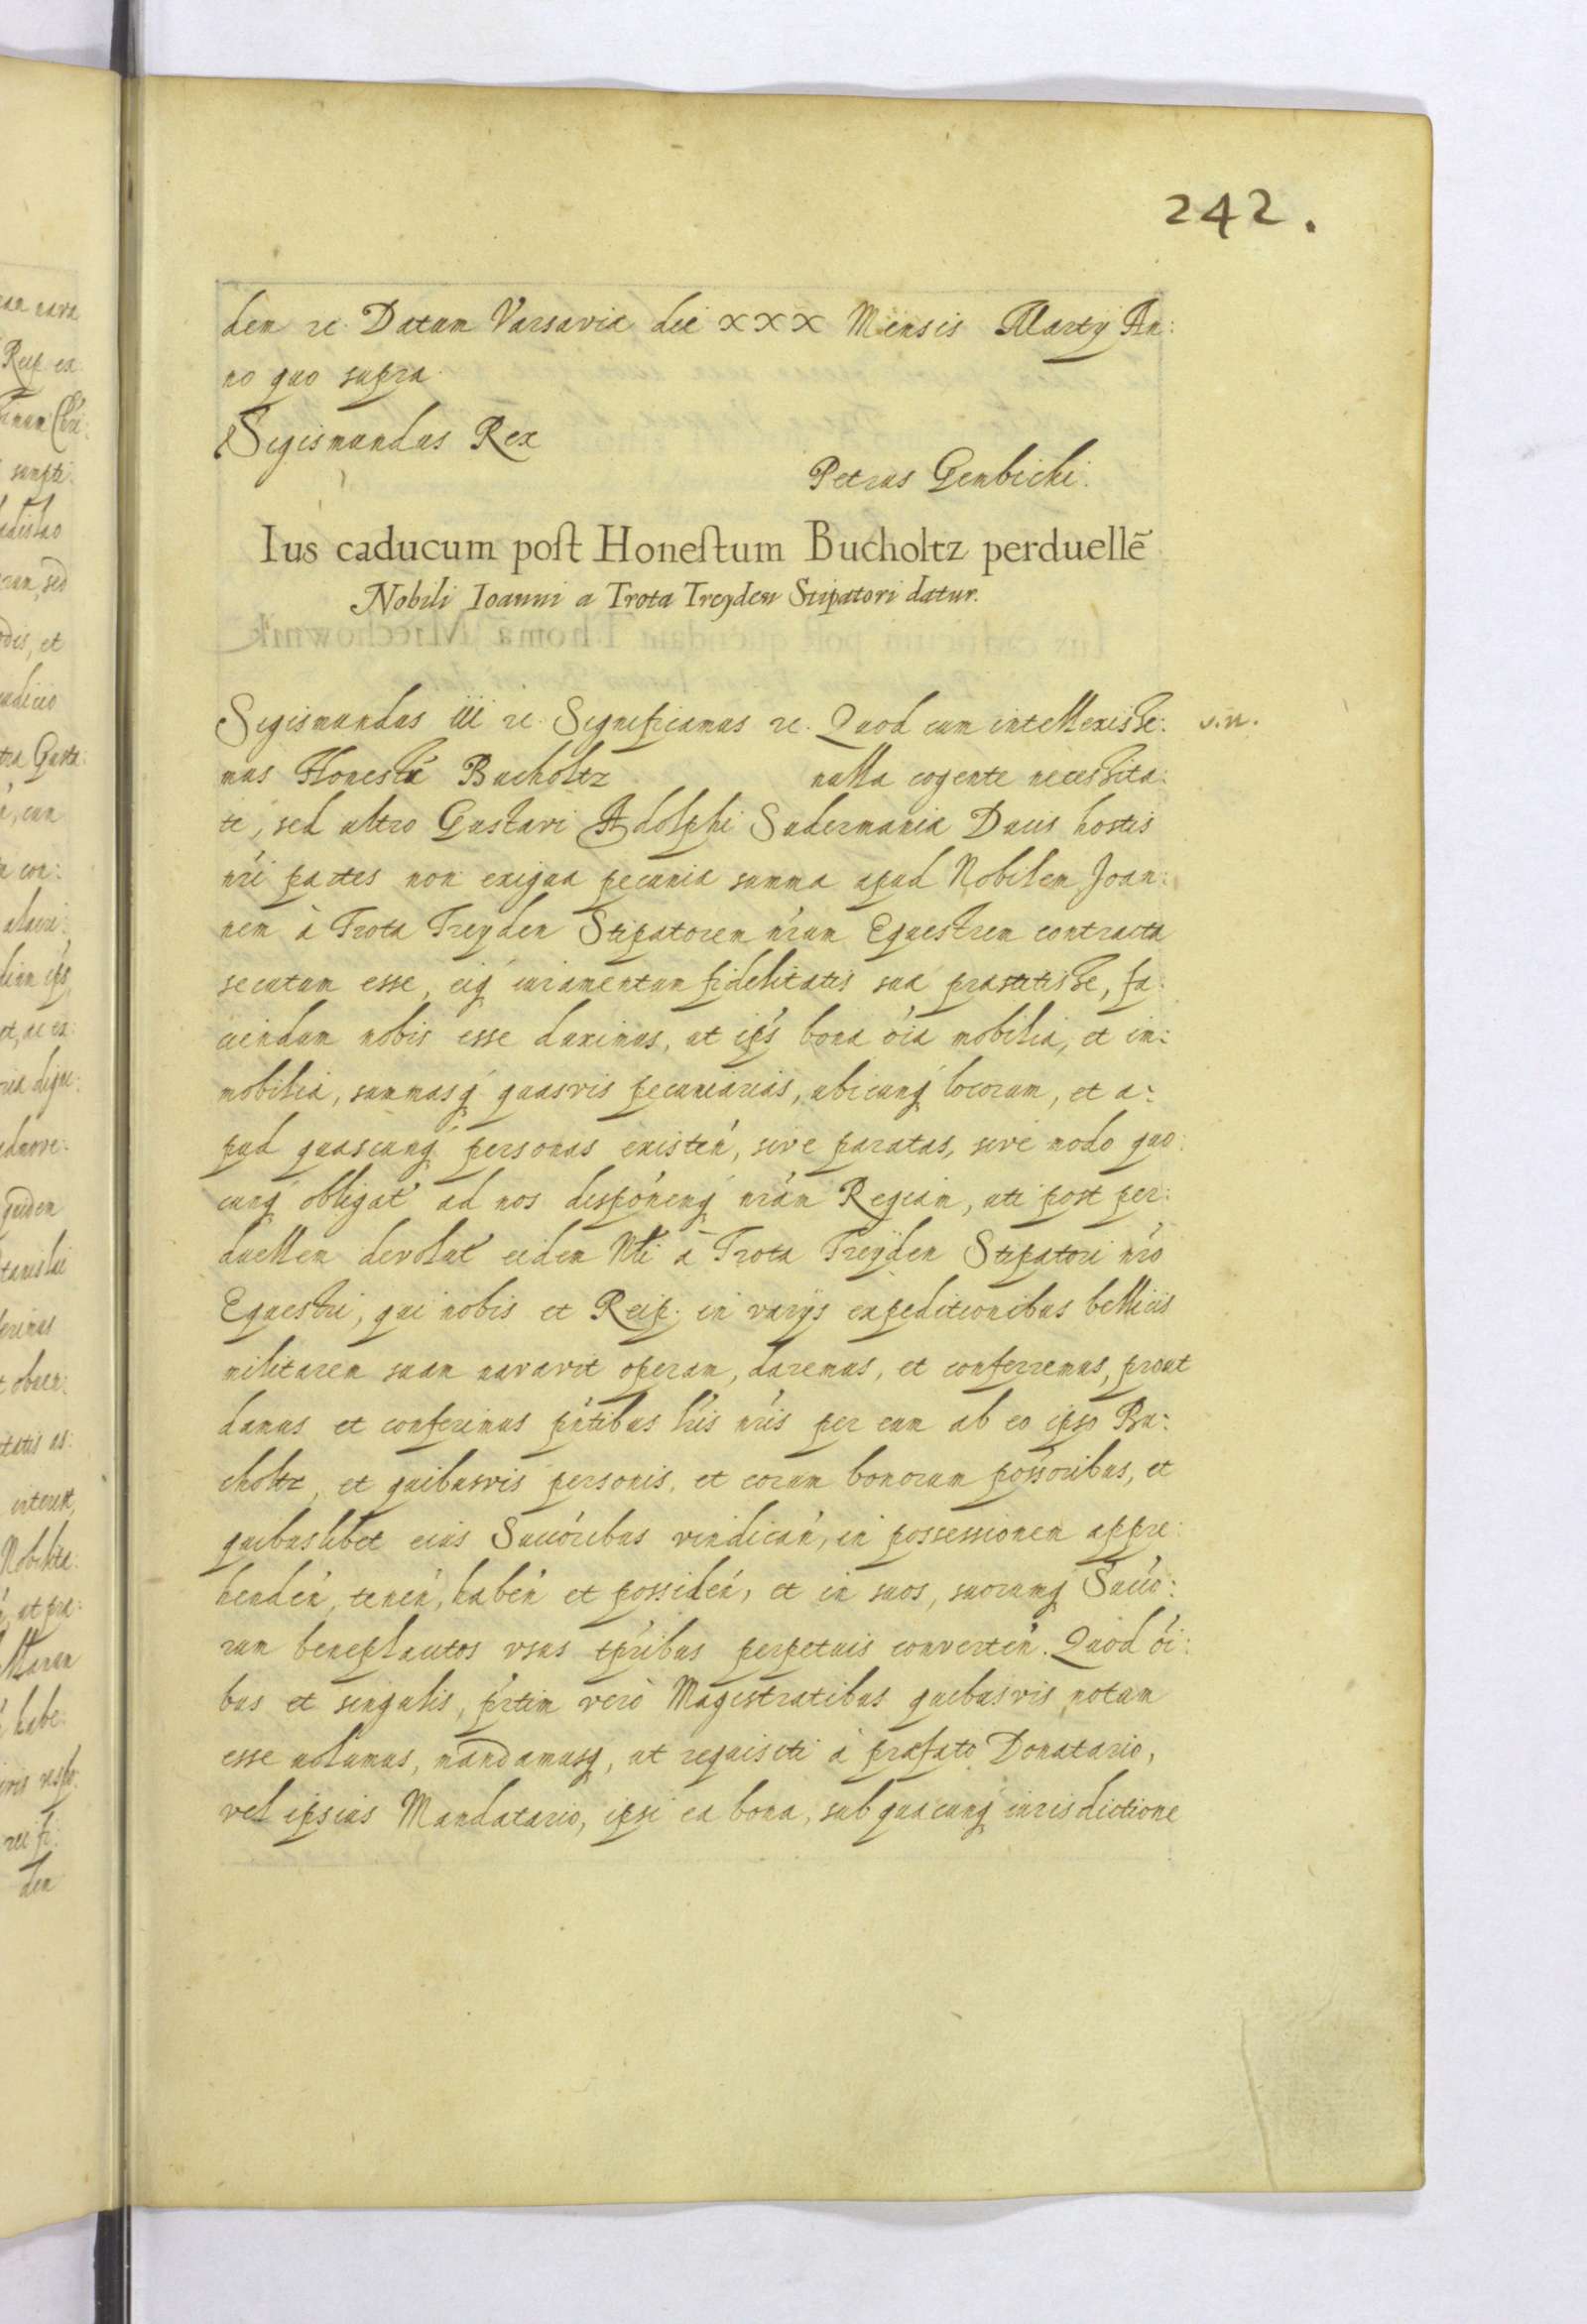 242.
dem etc. Datum Varsaviæ die XXX Mensis Martij An:
no quo supra.
Sigismundus Rex
Petrus Gembicki.
Ius caducum post Honestum Bucholtz perduellē
Nobili Ioanni a Trota Treyden Stipatori datur.
Sigismundus iii etc. Significamus etc. Quod cum intellexisse: v.n.
mus Honestū Bucholtz nulla cogente necessita:
te, sed ultro Gustavi Adolphi Sudermaniæ Ducis hostis
nr̃i partes non exigua pecuniæ summa apud Nobilem Joan:
nem à Trota Treyden Stipatorem nr̃um Equestrem contracta
secutum esse, eiq́ iuramentum fidelitatis suæ præstitisse, fa:
ciendum nobis esse duximus, ut ip̃s bona õia mobilia, et im:
mobilia, summasq́ quasvis pecuniarias, ubicunq́ locorum, et a:
pud quascunq́ personas existen̄, sive paratas, sive modo quo:
cunq́ obligat̄ ad nos dispõnemq́ nr̃am Regiam, uti post per:
duellem devolut̄ eidem Nli à Trota Treyden Stipatori nr̃o
Equestri, qui nobis et Reip. in varijs expeditionibus bellicis
militarem suam navavit operam, daremus, et conferremus, prout
damus et conferimus pñtibus lr̃is nr̃is per eum ab eo ipso Bu:
choltz, et quibusvis personis, et eorum bonorum põssoribus, et
quibuslibet eius Succõribus vindican̄, in possessionem appre:
henden̄, tenen̄, haben̄ et possiden̄, et in suos, suorumq́ Succõ:
rum beneplacitos vsus tp̃ribus perpetuis converten̄. Quod õi:
bus et singulis, pr̃tim verò Magistratibus quibusvis notum
esse volumus, mandamusq́, ut requisiti à præfato Donatario,
vel ipsius Mandatario, ipsi ea bona, sub quacunq́ iurisdictione